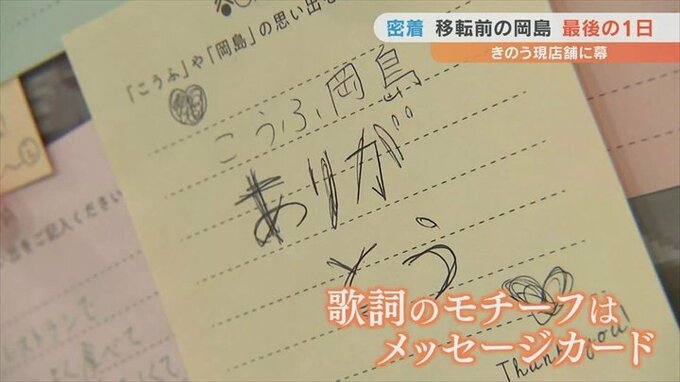 密着 移転前の岡島 最後の1日
きのう現店舗に幕
「こうふ」や「岡島」の思い出を
こうふ岡島
ありが
とう
Thank you!
歌詞のモチーフは
メッセージカード
をご記入ください
レストランで